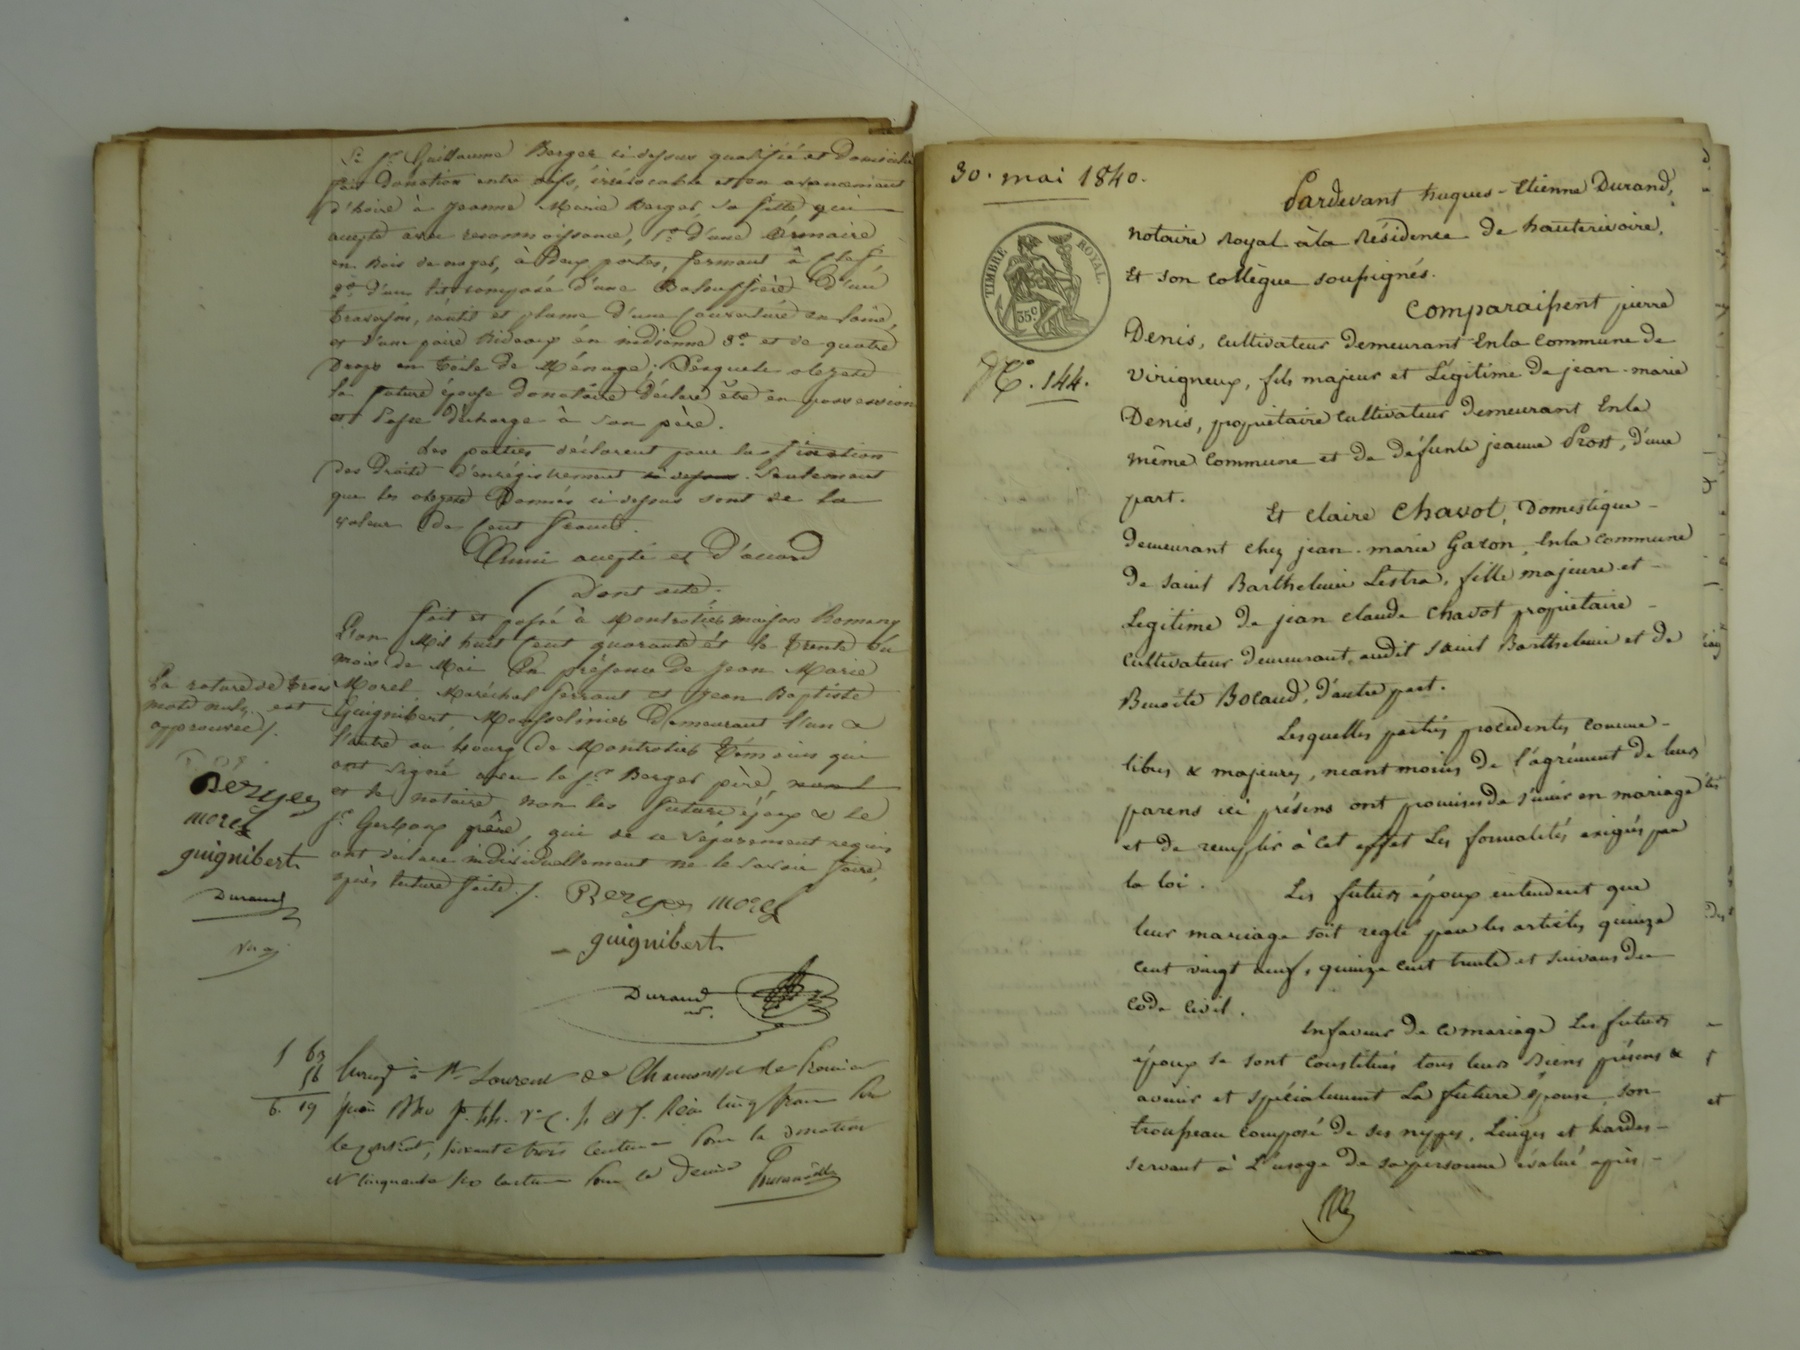 Le Sr. Guillaume Berger ci-dessus qualifié et domicilié
fait donation entre vifs, irrévocable et en avancement
d'hoirie à Jeanne Marie Berger, sa fille qui
accepte avec reconnaissance, 1º d'une Armoire
en bois de noyer, à deux portes, fermant à clef,
2º d'un lit composé d'une Baloussière d'un
traversin, coutil et plume d'une Couverture en laine,
et d'une paire Rideaux en indienne 3º et de quatre
Draps en toile de Ménage; Desquels objets
la future épouse donataire déclare être en possession
et passe décharge à son père.
Les parties déclarent pour la fixation
des Droits d'enrégistrement ci dessus seulement
que les objets Donnés ci-dessus sont de la
valeur de Cent francs.
Ainsi accepté et D'accord
Dont acte.
fait et passé à Montrotier maison Romany
L'an Mil huit Cent quarante et le trente du
mois de Mai En présence de Jean Marie
Morel, Maréchal ferrant et Jean Baptiste
Guignibert Mousselinier Demeurant l'un &
l'autre au bourg de Montrotier témoins qui
ont signé avec le Sr. Berger père,
et le notaire non les futurs époux & le
Sr. père, qui de ce séparément requis
ont déclaré individuellement ne le savoir faire,
après lecture faite./.
La rature de trois
mots nuls est
approuvée/.
Berger
morel
guignibert
Durand
Berger morel
guignibert
Durand
5 63
56
6. 19
Enregé à St Laurent de Chamousset le
juin 1840 fo. Vo. C. Reçu cinq francs pour
le contrat, soixante trois centimes pour la donation
et cinquante six centimes pour le Décime
30. mai 1840.
TIMBRE ROYAL
35c
No. 144.
Pardevant hugues-Etienne Durand,
notaire Royal à la Résidence de hauterivoire,
Et son Collègue soussignés.
Comparaissent pierre
Denis, cultivateur demeurant En la Commune de
Virigneux, fils majeur et Légitime de jean-marie
Denis, propriétaire cultivateur demeurant En la
même Commune et de défunte jeanne Prost, d'une
part.
Et claire Chavot, Domestique
demeurant chez jean-marie Gazon, En la commune
de saint Barthelemi Lestra, fille majeure et
Legitime de jean claude Chavot propriétaire
cultivateur demeurant audit saint Barthelemi et de
Benoite Bocaud, d'autre part.
Lesquelles parties procedentes comme
libres & majeures, néantmoins de l'agrément de leurs
parens ici présens ont promis de s'unir en mariage
et de remplir à cet effet Les formalités exigées par
la loi.
Les futurs époux entendent que
leur mariage soit reglé par les articles quinze
cent vingt neuf, quinze cent trente et suivans du
Code Civil.
En faveur de ce mariage Les futurs
époux se sont constitués tous leurs Biens présens &
avenir et spécialement La future épouse, son
trousseau composé de ses nippes, Linges et hardes
servant à L'usage de sa personne évalué après